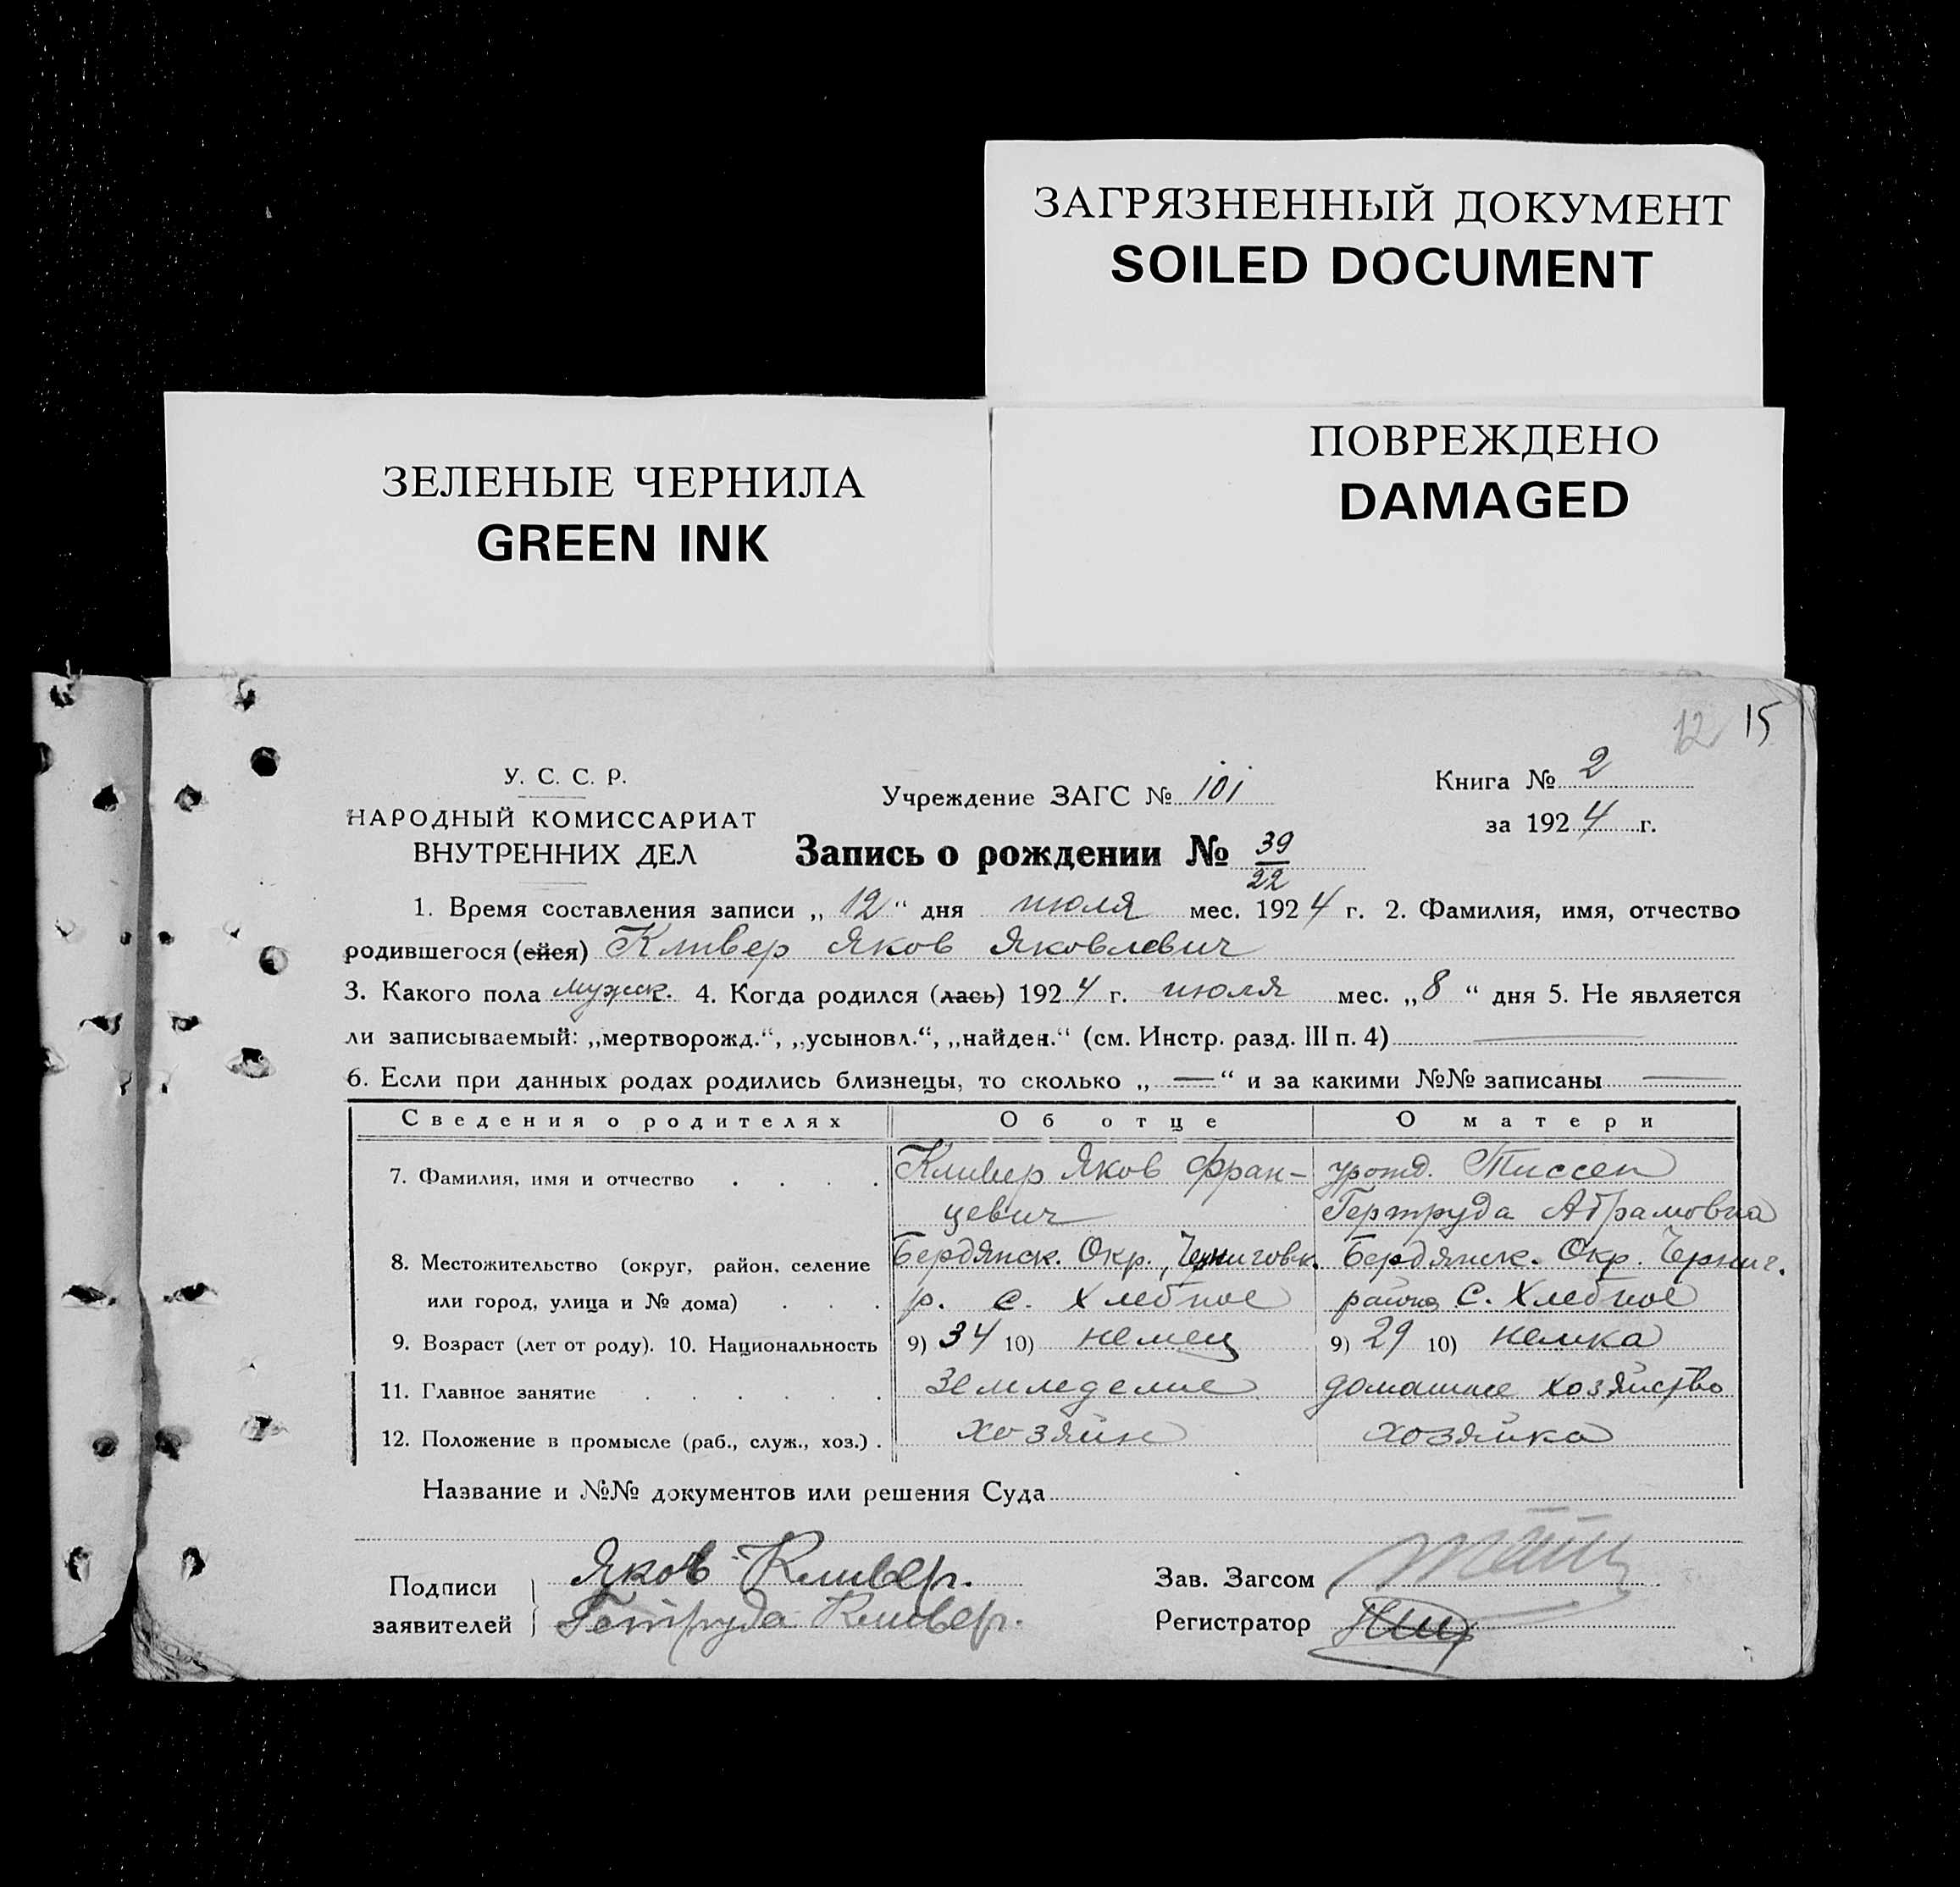 ЗАГРЯЗНЕННЫЙ ДОКУМЕНТ
SOILED DOCUMENT
ЗЕЛЕНЫЕ ЧЕРНИЛА
GREEN INK
ПОВРЕЖДЕНО
DAMAGED
12 15
У. С. С. Р.
НАРОДНЫЙ КОМИССАРИАТ
ВНУТРЕННИХ ДЕЛ
Учреждение ЗАГС № 101
Книга № 2
за 1924 г.
Запись о рождении № 39/22
1. Время составления записи „12“ дня июля мес. 1924 г. 2. Фамилия, имя, отчество
родившегося (ейся) Кливер Яков Яковлевич
3. Какого пола мужск. 4. Когда родился (лась) 1924 г. июля мес. „8“ дня 5. Не является
ли записываемый: „мертворожд.“, „усыновл.“, „найден.“ (см. Инстр. разд. III п. 4) —
6. Если при данных родах родились близнецы, то сколько „—“ и за какими №№ записаны —
Сведения о родителях Об отце О матери
7. Фамилия, имя и отчество . . . . Кливер Яков Фран- урожд. Тиссен
цевич Гертруда Абрамовна
8. Местожительство (округ, район, селение Бердянск. Окр., Черниговк. Бердянск. Окр. Черниг.
или город, улица и № дома) . . . р. с. Хлебное района С. Хлебное
9. Возраст (лет от роду). 10. Национальность 9) 34 10) немец 9) 29 10) немка
11. Главное занятие . . . . . . Земледелие домашнее хозяйство
12. Положение в промысле (раб., служ., хоз.) . хозяин хозяйка
Название и №№ документов или решения Суда
Подписи Яков Кливер. Зав. Загсом
заявителей Гетруда Кливер. Регистратор